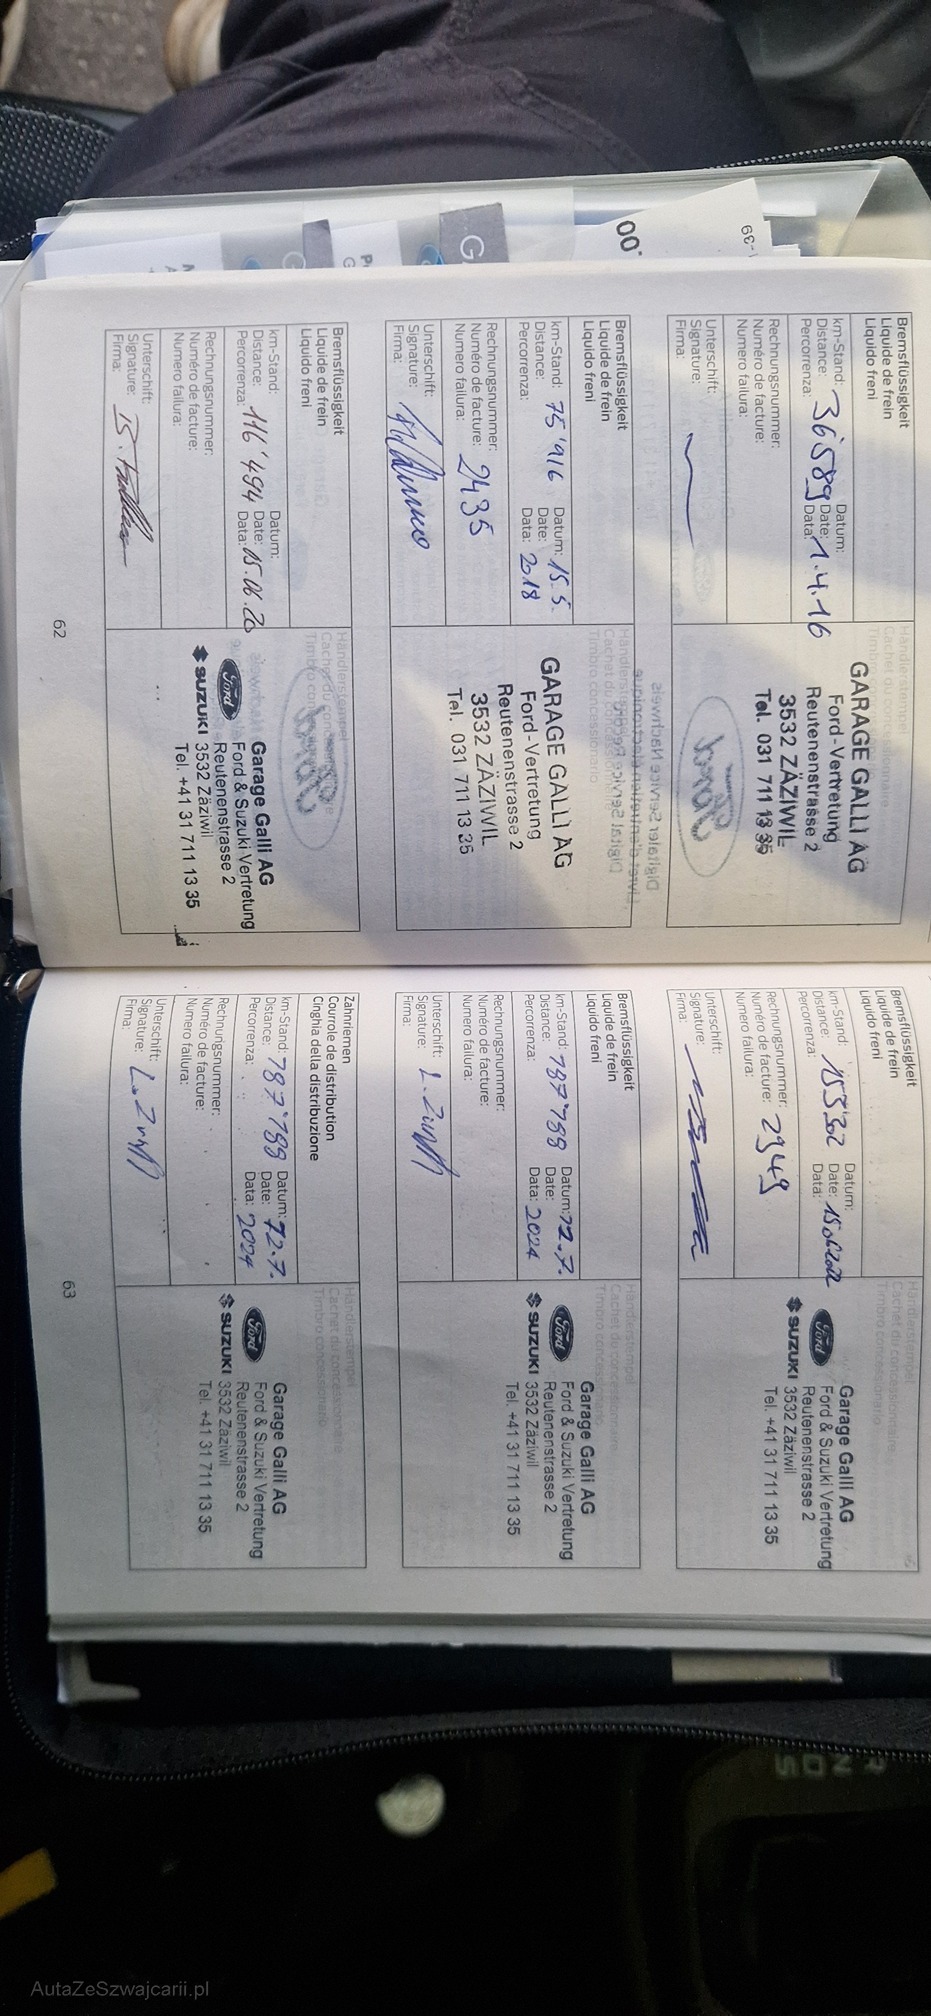 Bremsflüssigkeit
Liquide de frein
Liquido freni
km-Stand: Datum:
Distance: 36'589 Date: 1.4.16
Percorrenza: Data:
Rechnungsnummer:
Numéro de facture:
Numero failura:
Unterschift:
Signature:
Firma:
Händlerstempel
Cachet du concessionnaire
Timbro concessionario
GARAGE GALLI AG
Ford-Vertretung
Reutenenstrasse 2
3532 ZÄZIWIL
Tel. 031 711 13 35
Bremsflüssigkeit
Liquide de frein
Liquido freni
km-Stand: 75'916 Datum: 15.5.
Distance: Date:
Percorrenza: Data: 2018
Rechnungsnummer:
Numéro de facture: 2435
Numero failura:
Unterschift:
Signature:
Firma:
Händlerstempel
Cachet du concessionnaire
Timbro concessionario
GARAGE GALLI AG
Ford-Vertretung
Reutenenstrasse 2
3532 ZÄZIWIL
Tel. 031 711 13 35
Bremsflüssigkeit
Liquide de frein
Liquido freni
km-Stand: Datum:
Distance: 116'494 Date:
Percorrenza: Data: 15.06.20
Rechnungsnummer:
Numéro de facture:
Numero failura:
Unterschift:
Signature:
Firma:
Händlerstempel
Cachet du concessionnaire
Timbro concessionario
Garage Galli AG
Ford Ford & Suzuki Vertretung
Reutenenstrasse 2
SUZUKI 3532 Zäziwil
Tel. +41 31 711 13 35
62
Bremsflüssigkeit
Liquide de frein
Liquido freni
km-Stand: Datum:
Distance: 153'302 Date:
Percorrenza: Data:
Rechnungsnummer:
Numéro de facture: 2949
Numero failura:
Unterschift:
Signature:
Firma:
Händlerstempel
Cachet du concessionnaire
Timbro concessionario
Garage Galli AG
Ford Ford & Suzuki Vertretung
Reutenenstrasse 2
SUZUKI 3532 Zäziwil
Tel. +41 31 711 13 35
Bremsflüssigkeit
Liquide de frein
Liquido freni
km-Stand: 187'199 Datum: 12.7.
Distance: Date:
Percorrenza: Data: 2024
Rechnungsnummer:
Numéro de facture:
Numero failura:
Unterschift:
Signature:
Firma:
Händlerstempel
Cachet du concessionnaire
Timbro concessionario
Garage Galli AG
Ford Ford & Suzuki Vertretung
Reutenenstrasse 2
SUZUKI 3532 Zäziwil
Tel. +41 31 711 13 35
Zahnriemen
Courrole de distribution
Cinghia della distribuzione
km-Stand: 187'199 Datum: 12.7.
Distance: Date:
Percorrenza: Data: 2024
Rechnungsnummer:
Numéro de facture:
Numero failura:
Unterschift:
Signature:
Firma:
Händlerstempel
Cachet du concessionnaire
Timbro concessionario
Garage Galli AG
Ford Ford & Suzuki Vertretung
Reutenenstrasse 2
SUZUKI 3532 Zäziwil
Tel. +41 31 711 13 35
63
R
N
D
S
AutaZeSzwajcarii.pl